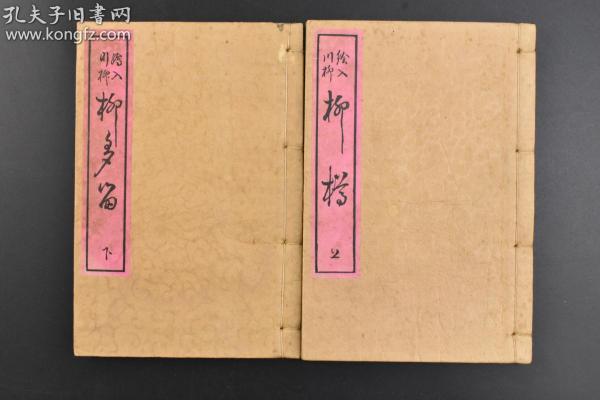 孔夫子旧书网
www.kongfz.com
繪入
川柳
柳樽
上
繪入
川柳
柳多留
下